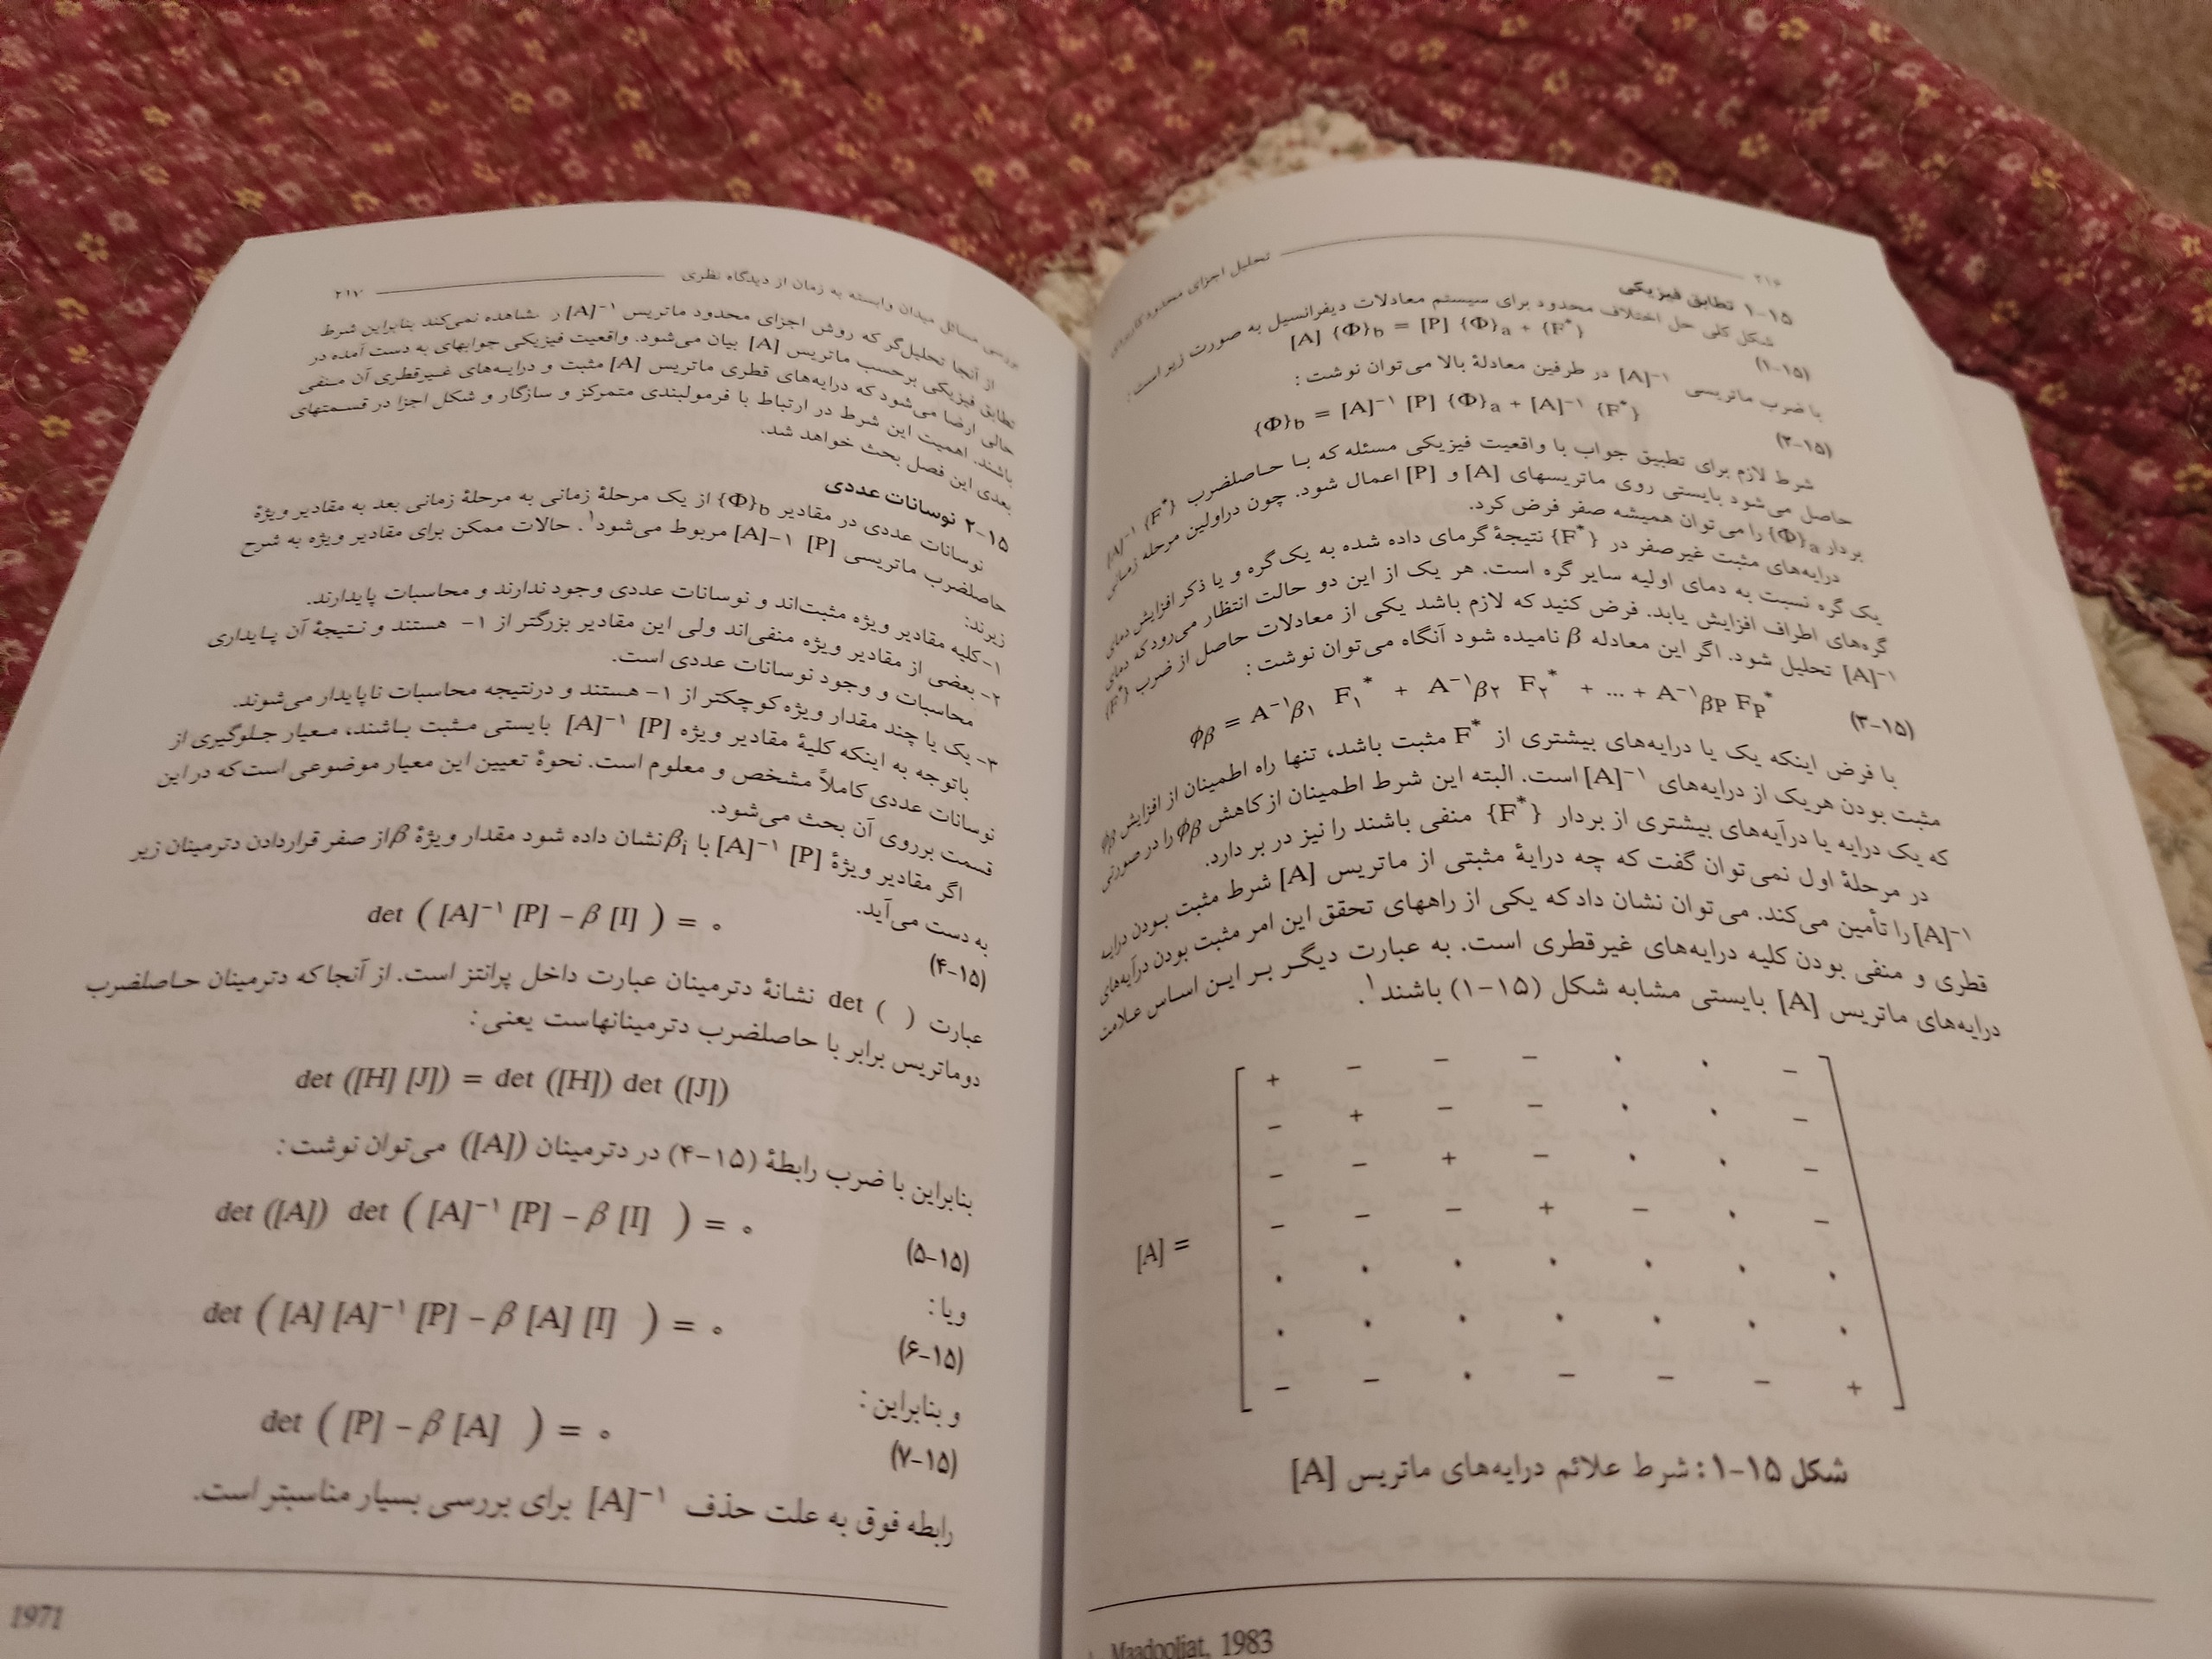 ۲۱۶ تحلیل اجزای محدود کاربردی
۱-۱۵ تطابق فیزیکی
شکل کلی حل اختلاف محدود برای سیستم معادلات دیفرانسیل به صورت زیر است:
[A] {Φ}b = [P] {Φ}a + {F*}
(۱-۱۵)
با ضرب ماتریسی [A]⁻¹ در طرفین معادلهٔ بالا می‌توان نوشت:
{Φ}b = [A]⁻¹ [P] {Φ}a + [A]⁻¹ {F*}
(۲-۱۵)
شرط لازم برای تطبیق جواب با واقعیت فیزیکی مسئله که بـا حـاصلضرب [A]⁻¹ {F*}
حاصل می‌شود بایستی روی ماتریسهای [A] و [P] اعمال شود. چون دراولین مرحله زمانی
بردار {Φ}a را می‌توان همیشه صفر فرض کرد.
درایه‌های مثبت غیرصفر در {F*} نتیجهٔ گرمای داده شده به یک گره و یا ذکر افزایش دمای
یک گره نسبت به دمای اولیه سایر گره است. هر یک از این دو حالت انتظار می‌رود که دمای
گره‌های اطراف افزایش یابد. فرض کنید که لازم باشد یکی از معادلات حاصل از ضرب {F*}
[A]⁻¹ تحلیل شود. اگر این معادله β نامیده شود آنگاه می‌توان نوشت:
ϕβ = A⁻¹β۱ F۱* + A⁻¹β۲ F۲* + ... + A⁻¹βP FP*
(۳-۱۵)
با فرض اینکه یک یا درایه‌های بیشتری از F* مثبت باشد، تنها راه اطمینان از افزایش ϕβ
مثبت بودن هریک از درایه‌های [A]⁻¹ است. البته این شرط اطمینان از کاهش ϕβ را در صورتی
که یک درایه یا درآیه‌های بیشتری از بردار {F*} منفی باشند را نیز در بر دارد.
در مرحلهٔ اول نمی‌توان گفت که چه درایهٔ مثبتی از ماتریس [A] شرط مثبت بـودن درایـه
[A]⁻¹ را تأمین می‌کند. می‌توان نشان داد که یکی از راههای تحقق این امر مثبت بودن درآیه‌های
قطری و منفی بودن کلیه درایه‌های غیرقطری است. به عبارت دیگـر بـر ایـن اسـاس عـلامت
درایه‌های ماتریس [A] بایستی مشابه شکل (۱۵-۱) باشند۱.
+ − − − . . −
− + − − . . −
− − + − . . −
[A] = − − − + − . −
. . . . . . .
. . . . . . .
− − . − − − +
شکل ۱۵-۱: شرط علائم درایه‌های ماتریس [A]
Maadooliat, 1983
بررسی مسائل میدان وابسته به زمان از دیدگاه نظری ۲۱۷
از آنجا تحلیل‌گر که روش اجزای محدود ماتریس [A]⁻¹ ر مشاهده نمی‌کند بنابراین شرط
تطابق فیزیکی برحسب ماتریس [A] بیان می‌شود. واقعیت فیزیکی جوابهای به دست آمده در
حالی ارضا می‌شود که درایه‌های قطری ماتریس [A] مثبت و درایـه‌های غـیرقطری آن مـنفی
باشند. اهمیت این شرط در ارتباط با فرمولبندی متمرکز و سازگار و شکل اجزا در قسـمتهای
بعدی این فصل بحث خواهد شد.
۲-۱۵ نوسانات عددی
نوسانات عددی در مقادیر {Φ}b از یک مرحلهٔ زمانی به مرحلهٔ زمانی بعد به مقادیر ویژهٔ
حاصلضرب ماتریسی [A]-۱ [P] مربوط می‌شود۱. حالات ممکن برای مقادیر ویژه به شرح
زیرند:
۱- کلیه مقادیر ویژه مثبت‌اند و نوسانات عددی وجود ندارند و محاسبات پایدارند.
۲- بعضی از مقادیر ویژه منفی‌اند ولی این مقادیر بزرگتر از ۱- هستند و نـتیجهٔ آن پـایداری
محاسبات و وجود نوسانات عددی است.
۳- یک یا چند مقدار ویژه کوچکتر از ۱- هستند و درنتیجه محاسبات ناپایدار می‌شوند.
باتوجه به اینکه کلیهٔ مقادیر ویژه [A]⁻¹ [P] بایستی مـثبت بـاشند، مـعیار جـلوگیری از
نوسانات عددی کاملاً مشخص و معلوم است. نحوهٔ تعیین این معیار موضوعی است که در این
قسمت برروی آن بحث می‌شود.
اگر مقادیر ویژهٔ [A]⁻¹ [P] با βi نشان داده شود مقدار ویژهٔ β از صفر قراردادن دترمینان زیر
به دست می‌آید.
det ( [A]⁻¹ [P] − β [I] ) = ۰
(۴-۱۵)
عبارت det ( ) نشانهٔ دترمینان عبارت داخل پرانتز است. از آنجا که دترمینان حـاصلضرب
دوماتریس برابر با حاصلضرب دترمینانهاست یعنی:
det ([H] [J]) = det ([H]) det ([J])
بنابراین با ضرب رابطهٔ (۱۵-۴) در دترمینان ([A]) می‌توان نوشت:
det ([A]) det ( [A]⁻¹ [P] − β [I] ) = ۰
(۵-۱۵)
ویا:
det ( [A] [A]⁻¹ [P] − β [A] [I] ) = ۰
(۶-۱۵)
و بنابراین:
det ( [P] − β [A] ) = ۰
(۷-۱۵)
رابطه فوق به علت حذف [A]⁻¹ برای بررسی بسیار مناسبتر است.
1971